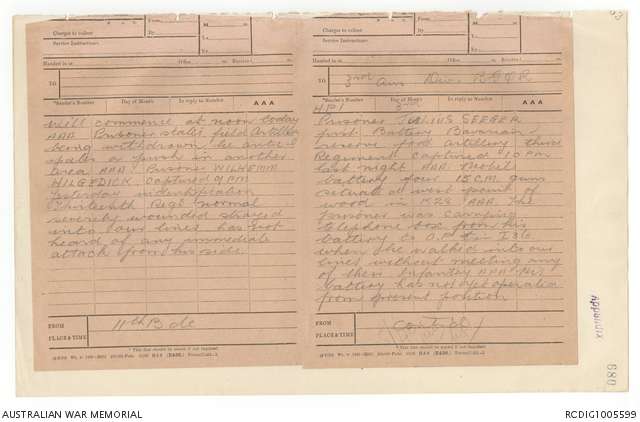 Charges to collect
Service Instructions.
Handed in at
Office
m.
Received
TO
*Sender's Number
Day of Month
In reply to Number
AAA
will commence at noon today
AAA Prisoner states field Artillery
being withdrawn he antici-
pates a push in another
area AAA Prisoner WILHEMM
HILGEDICK captured 9 PM
yesterday identification
Thirteenth Regt normal
severely wounded strayed
into our lines has not
heard of any immediate
attack from his side.
FROM
PLACE & TIME
11th Bde
* This line should be erased if not required.
Charges to collect
Service Instructions.
Handed in at
Office
m.
Received
TO
3rd Aus Div.
*Sender's Number
Day of Month
In reply to Number
AAA
3rd
Prisoner JULIUS SEEGER
first Battery Bavarian
reserve foot artillery three
Regiment captured 10 PM
last night AAA
battery four 15 CM guns
situated at west point of
wood in K28 AAA The
prisoner was carrying
telephone box from his
battery to O.P. in
when he walked into our
lines without meeting any
of their Infantry AAA His
battery has not yet operated
from present position
FROM
PLACE & TIME
(contd)
* This line should be erased if not required.
Appendix
089
AUSTRALIAN WAR MEMORIAL
RCDIG1005599